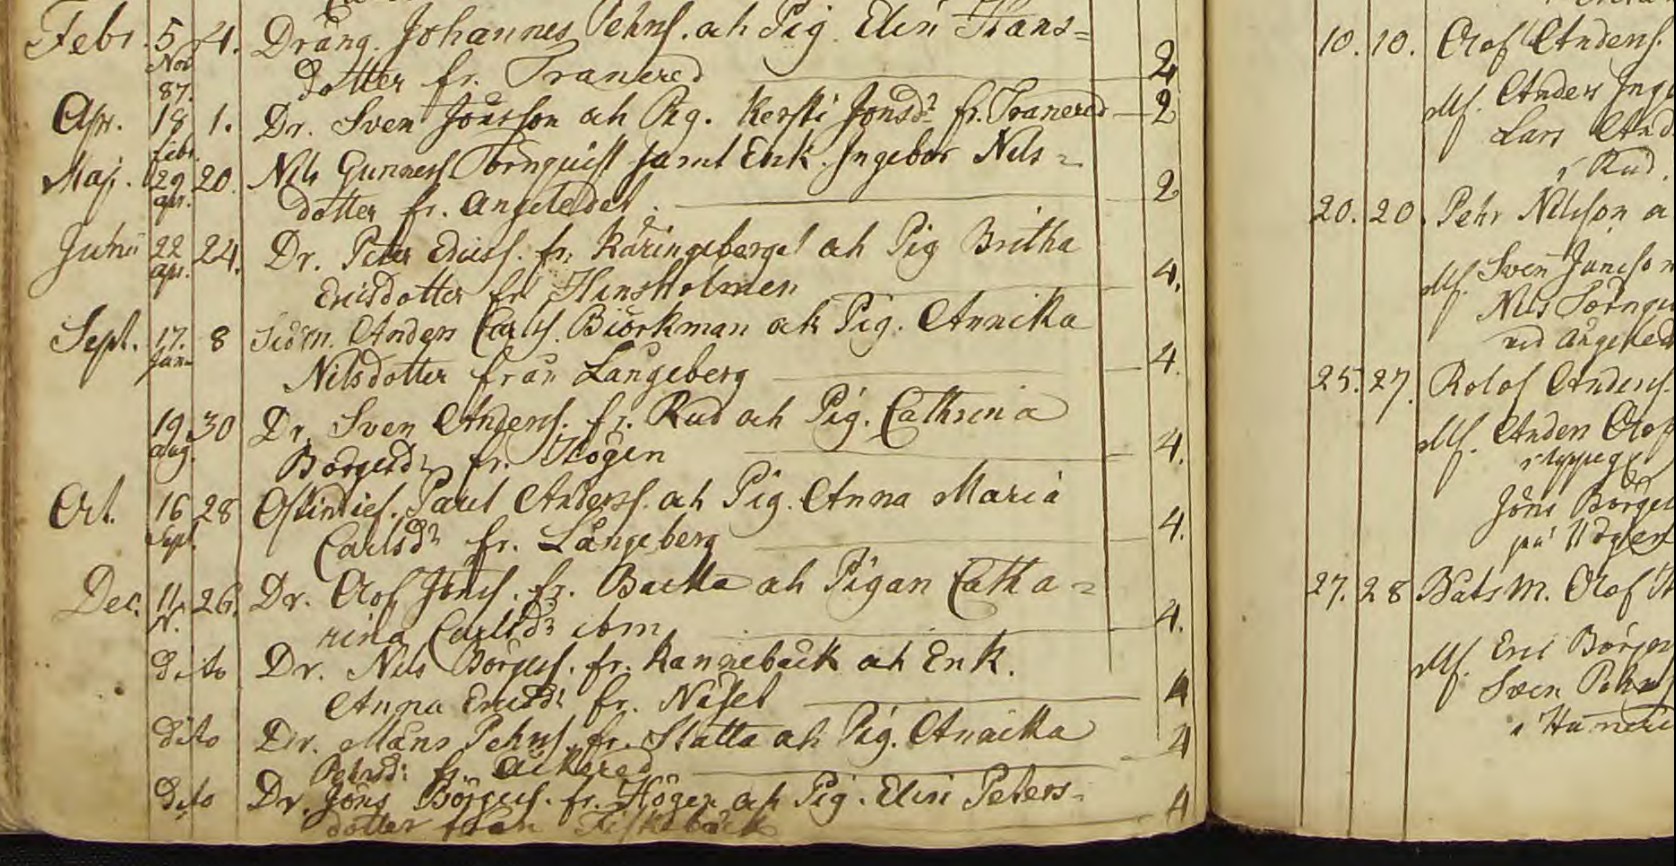 Febr. 5 4. Dräng. Johannes Pehrss. och Pig. Elin Hans=
Nov 87. dotter fr. Tranered 2
Apr. 18 1. Dr. Sven Jönsson och Pig. Kersti Jonsdr fr. Tranered 2
febr.
Maj. 29 20. Nils Gunnarss. Törnquist samt Enk. Ingebor Nils=
apr. dotter fr. Angeledet. 2
Junii 22 24. Dr. Peter Ericss. fr. Käringeberget och Pig Britha
apr. Ericsdotter fr. Hinsholmen 4.
Sept. 17. 8 Anders Carlss. Biörkman och Pig. Annika
Jun Nilsdotter från Långeberg 4.
19 30 Dr. Sven Anderss. fr. Rud och Pig. Cathrina
aug. Börgesdr fr. Högen 4.
Oct. 16 28 Ostindief. Paul Anderss. och Pig. Anna Maria
Sept. Carlsdr fr. Långeberg 4.
Dec. 11 26. Dr. Olof Jönss. fr. Backa och Pigan Catha=
rina Carlsdr ibm 4.
dito Dr. Nils Börgess. fr. Kannebäck och Enk.
Anna Ericsdr fr. Näset 4
dito Dr. Måns Pehrss. fr. Slätta och Pig. Annika
Pehrsdr fr. Åckered 4
dito Dr. Jöns Börgess. fr. Högen och Pig. Elin Peters=
dotter från Fiskebäck 4
10. 10. Olof Anderss.
Mf. Anders
Lars And
i Rud.
20. 20. Pehr Nilsson
Mf. Sven
Nils Törnqu
vid Angeled
25. 27. Rolof Anderss.
Mf. Anders Olof
Jöns Börges
på Högen
27. 28 Båtsm. Olof
Mf. Eric Börges
Sven Pehrs